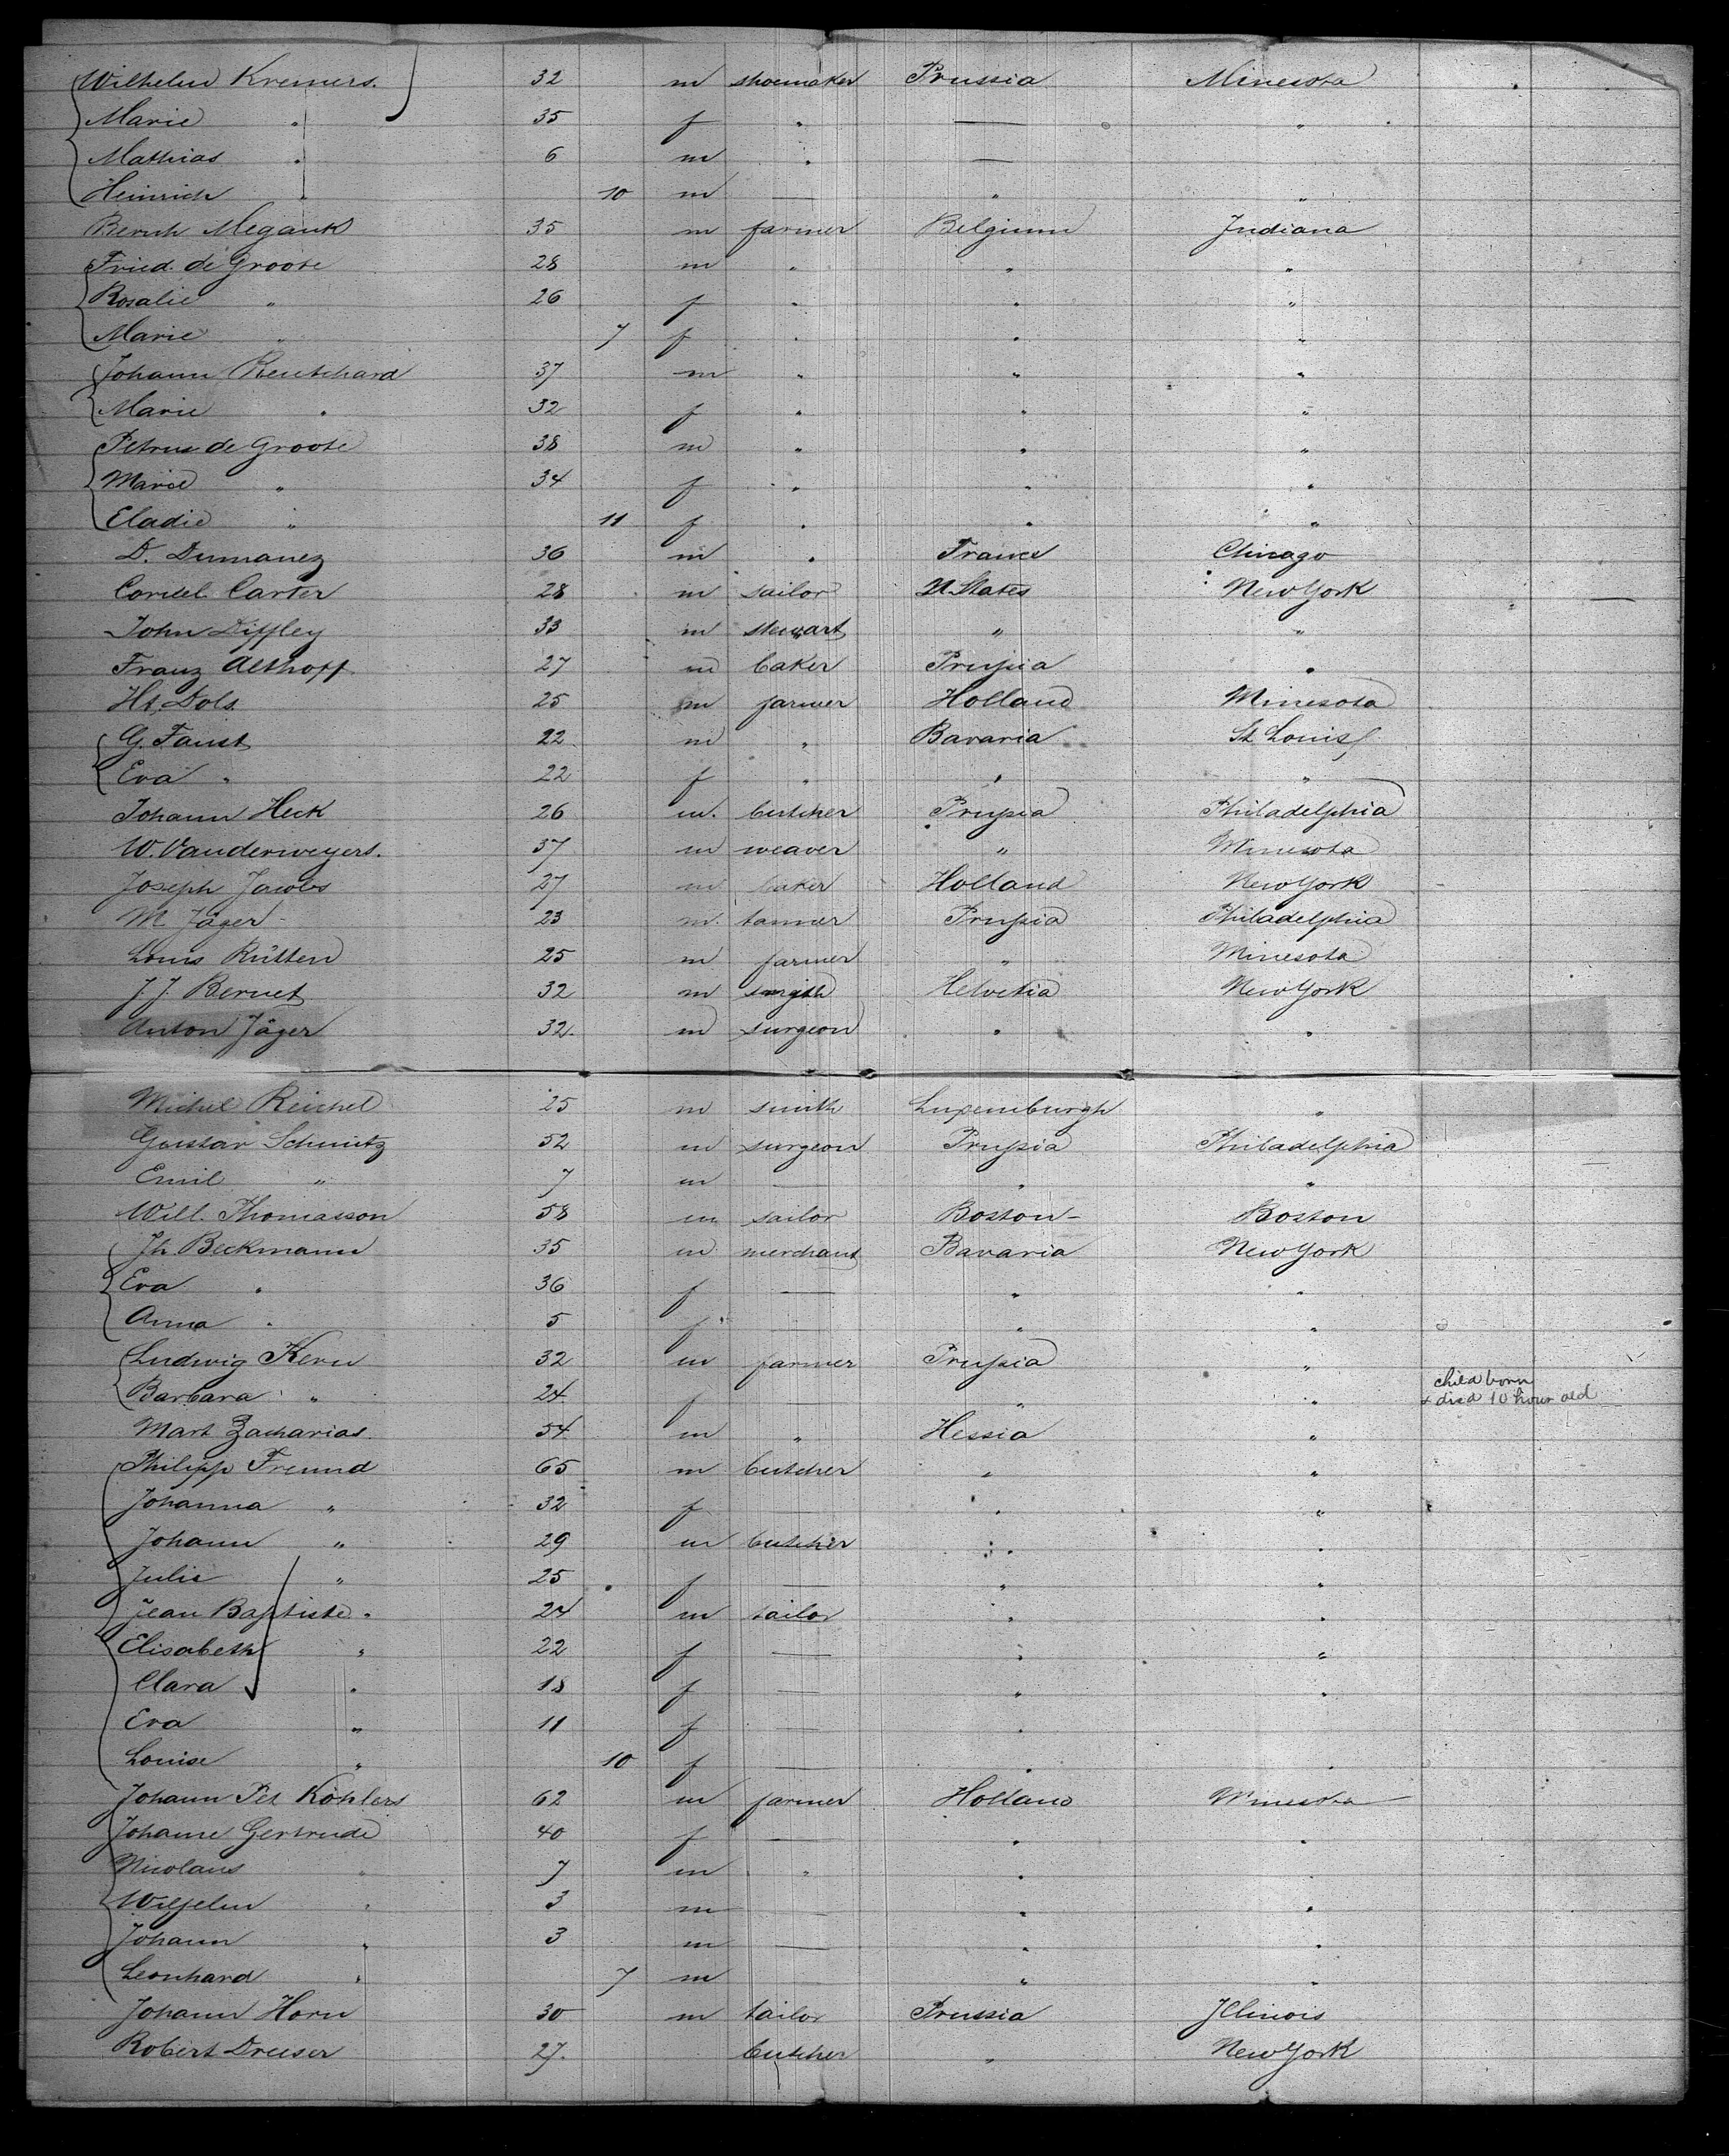 Wilhelm Kremers. 32 m shoemaker Prussia Minesota
Marie " 35 f " — "
Mathias " 6 m " —
Heinrich " 10 m — " "
Bernh. Megank 35 m farmer Belgium Indiana
Fried. de Groote 28 m " " "
Rosalie " 26 f " " "
Marie " 7 f " " "
Johann Reutchard 37 m " " "
Marie " 32 f " " "
Petrus de Groote 38 m " " "
Marie " 34 f " " "
Eladie " 11 f " " "
D. Dumanez 36 m " France Chicago
Cordel Carter 28 m sailor U. States New York
John Diffley 33 m stewart " "
Franz Althoff 27 m baker Prussia "
Ht. Dols 25 m farmer Holland Minesota
G. Faust 22 m " Bavaria St Louis
Eva " 22 f " " "
Johann Heck 26 m. butcher Prussia Philadelphia
W. Vanderweyers. 37 m weaver " Minesota
Joseph Jacobs 27 m baker Holland New York
M. Jäger 23 m. tanner Prussia Philadelphia
Louis Rütten 25 m farmer " Minesota
J. J. Bernet 32 m smith Helvetia New York
Anton Jäger 32. m surgeon " "
Michel Reichel 25 m smith Luxemburgh "
Gustav Schmitz 52 m surgeon Prussia Philadelphia
Emil " 7 m — " "
Will. Thomasson 58 m sailor Boston - Boston
Jh. Beckmann 35 m merchant Bavaria New York
Eva " 36 f — " "
Anna " 5 f — " "
Ludwig Kern 32 m farmer Prussia "
Barbara " 24 f — " " child born
+ died 10 hour old
Mart Zacharias. 54 m " Hessia "
Philipp Freund 65 m butcher " "
Johanna " 32 f — " "
Johann " 29 m butcher " "
Julie " 25 f — " "
Jean Baptiste " 24 m tailor " "
Elisabeth " 22 f — " "
Clara " 18 f — " "
Eva " 11 f — " "
Louise " 10 f — " "
Johann Pet Köhlers 62 m farmer Holland Minesota
Johanne Gertrude 40 f — " "
Nicolaus " 7 m " " "
Wilhelm " 3 m — " "
Johann " 3 m — " "
Leonhard " 7 m — " "
Johann Horn 30 m tailor Prussia Illinois
Robert Dreeser 27. butcher " New York